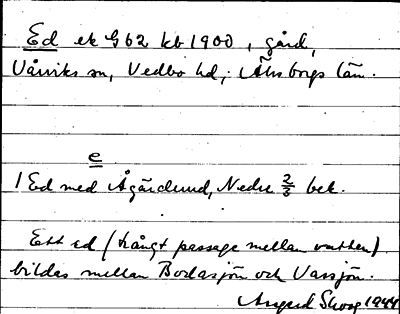 Ed ek G62 kb 1900, gård,
Vårviks sn, Vedbo hd, Älvsborgs län.
e
1 Ed med Ågärdsund, Nedre 2/3 beb.
Ett ed (trångt passage mellan vatten)
bildas mellan Bodasjön och Vassjön.
Skoog 1944